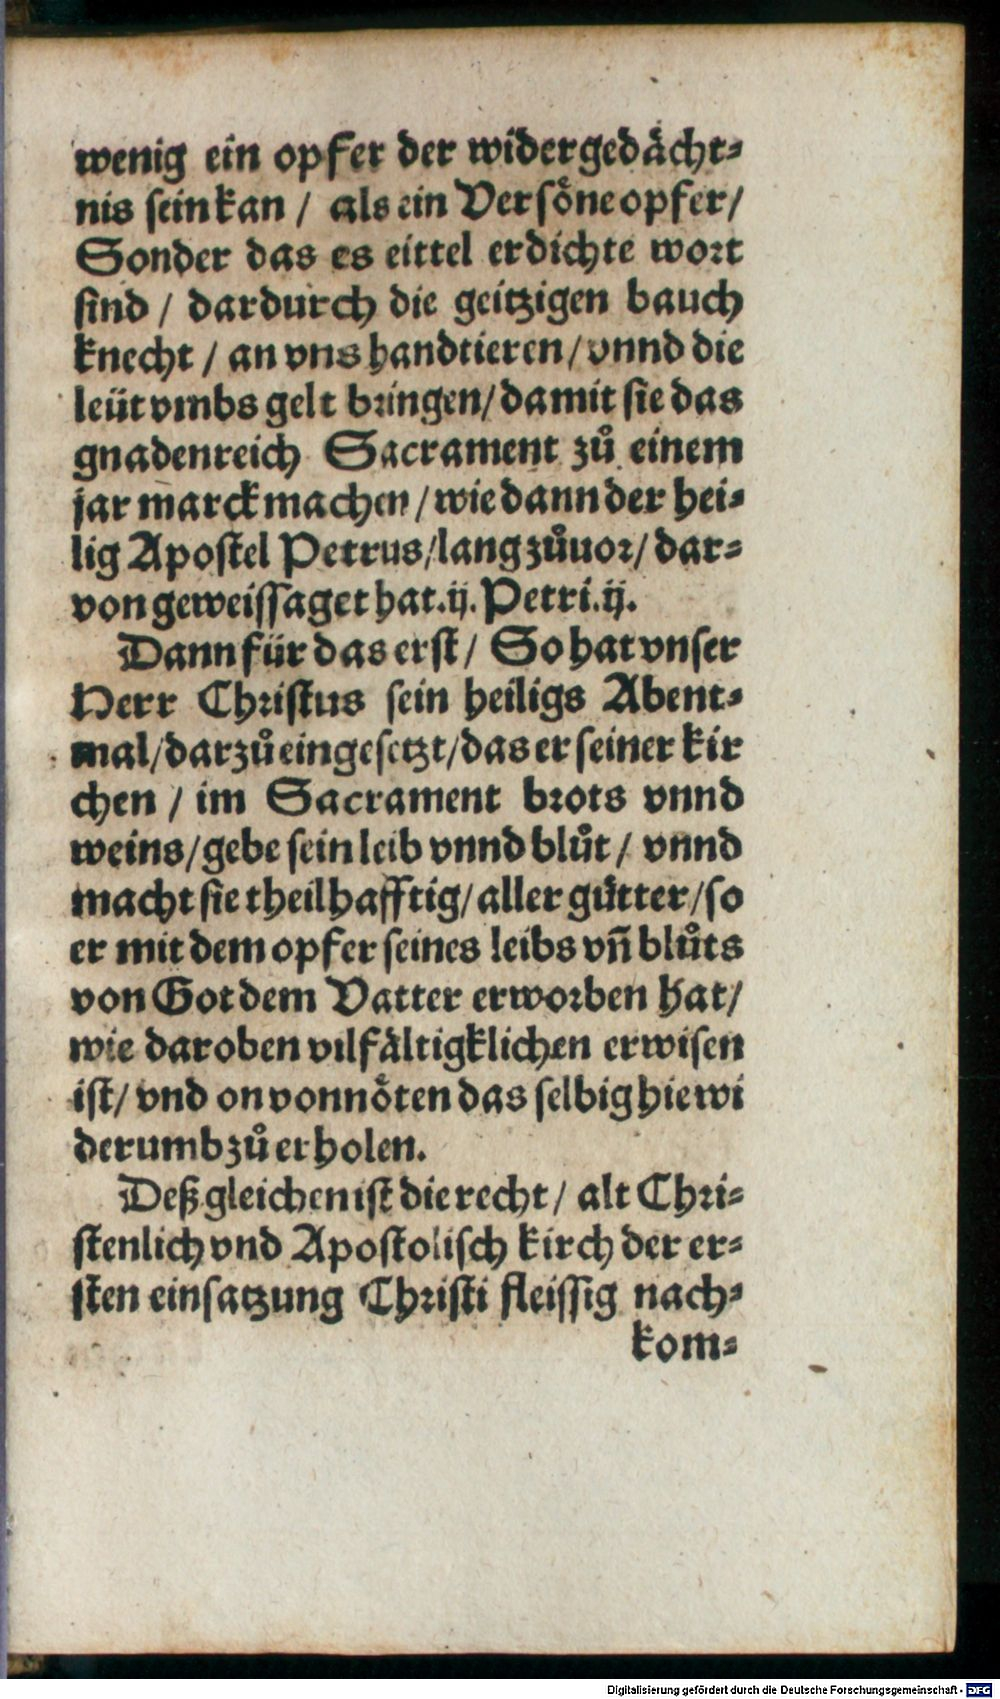 wenig ein opfer der widergedaͤcht⸗
nis sein kan / als ein Versoͤneopfer/
Sonder das es eittel erdichte wort
sind / dardurch die geitzigen bauch
knecht / an vns handtieren/ vnnd die
leüt vmbs gelt bringen/ damit sie das
gnadenreich Sacrament zuͦ einem
jar marck machen / wie dann der hei⸗
lig Apostel Petrus/ lang zuͦuor/ dar⸗
von geweissaget hat. ij. Petri. ij.
Dann für das erst / So hat vnser
Herr Christus sein heiligs Abent⸗
mal/ darzuͦ eingesetzt/ das er seiner kir
chen / im Sacrament brots vnnd
weins/ gebe sein leib vnnd bluͦt / vnnd
macht sie theilhafftig/ aller guͤtter/ so
er mit dem opfer seines leibs vñ bluͦts
von Got dem Vatter erworben hat/
wie daroben vilfaͤltigklichen erwisen
ist/ vnd on vonnoͤten das selbig hie wi
derumb zuͦ erholen.
Deßgleichen ist die recht / alt Chri⸗
stenlich vnd Apostolisch kirch der er⸗
sten einsatzung Christi fleissig nach⸗
kom⸗
Digitalisierung gefördert durch die Deutsche Forschungsgemeinschaft - DFG